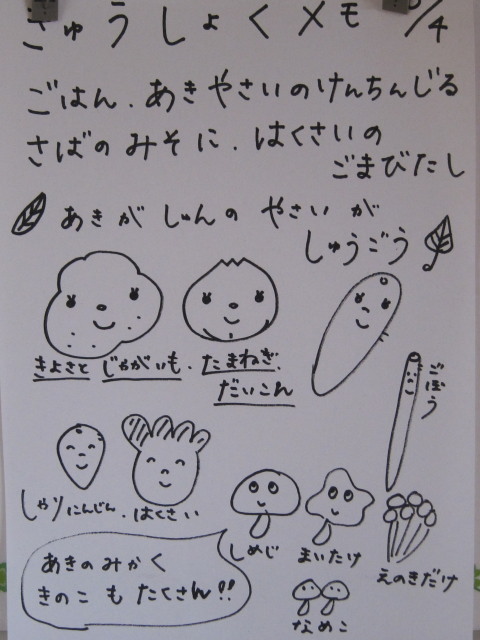 きゅうしょくメモ /4
ごはん.あきやさいのけんちんじる
さばのみそに.はくさいの
ごまびたし
あきがしゅんのやさいが
しゅうごう
きよさとじゃがいも.たまねぎ.
だいこん
ごぼう
しゃりにんじん.はくさい
しめじ
まいたけ
えのきだけ
なめこ
あきのみかく
きのこもたくさん!!